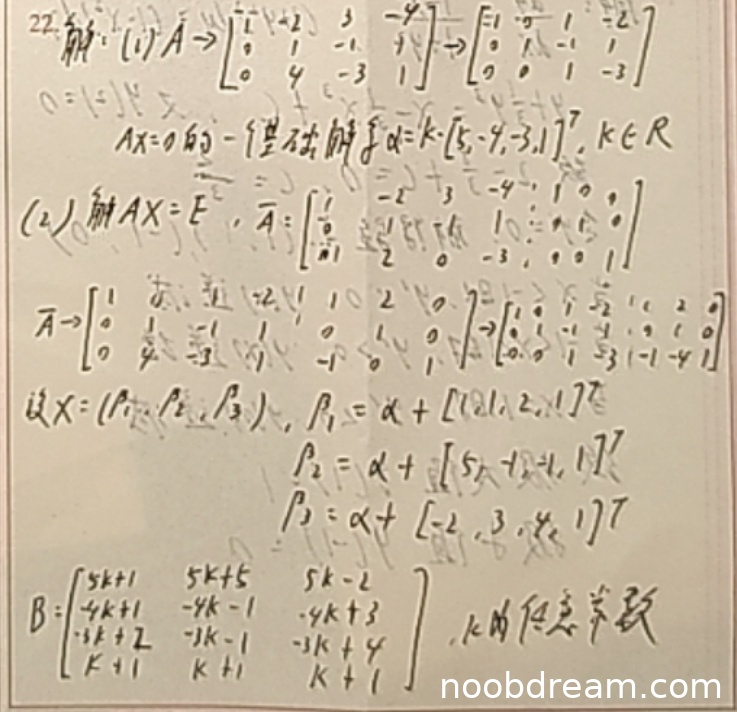 22. 解: (1) A → [1 -2 3 -4; 0 1 -1 1; 0 4 -3 1] → [1 0 1 -2; 0 1 -1 1; 0 0 1 -3]
AX=0 的一个基础解系 α=k·[5,-4,-3,1]ᵀ, k∈R
(2) 解 AX=E, Ā=[1 -2 3 -4 1 0 0; 0 1 -1 1 0 1 0; 1 2 0 -3 0 0 1]
Ā→[1 0 1 -2 1 2 0; 0 1 -1 1 0 1 0; 0 4 -3 1 -1 0 1]→[1 0 1 -2 1 2 0; 0 1 -1 1 0 1 0; 0 0 1 -3 -1 -4 1]
设X=(β₁, β₂, β₃), β₁=α+[1,1,2,1]ᵀ
β₂=α+[5,-1,-1,1]ᵀ
β₃=α+[-2,3,4,1]ᵀ
B=[5k+1 5k+5 5k-2; -4k+1 -4k-1 -4k+3; -3k+2 -3k-1 -3k+4; k+1 k+1 k+1], k为任意常数
noobdream.com